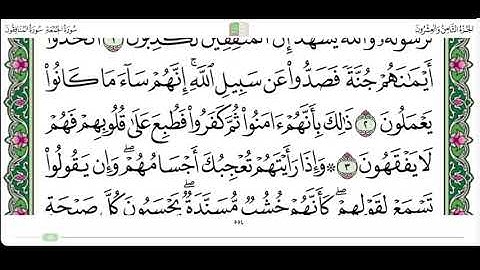 الجزء الثامن والعشرون
سورة الجمعة سورة المنافقون
لَرَسُولُهُۥ وَٱللَّهُ يَشْهَدُ إِنَّ ٱلْمُنَٰفِقِينَ لَكَٰذِبُونَ ١ ٱتَّخَذُوٓا۟
أَيْمَٰنَهُمْ جُنَّةً فَصَدُّوا۟ عَن سَبِيلِ ٱللَّهِ ۚ إِنَّهُمْ سَآءَ مَا كَانُوا۟
يَعْمَلُونَ ٢ ذَٰلِكَ بِأَنَّهُمْ ءَامَنُوا۟ ثُمَّ كَفَرُوا۟ فَطُبِعَ عَلَىٰ قُلُوبِهِمْ فَهُمْ
لَا يَفْقَهُونَ ٣ ۞ وَإِذَا رَأَيْتَهُمْ تُعْجِبُكَ أَجْسَامُهُمْ ۖ وَإِن يَقُولُوا۟
تَسْمَعْ لِقَوْلِهِمْ ۖ كَأَنَّهُمْ خُشُبٌ مُّسَنَّدَةٌ ۖ يَحْسَبُونَ كُلَّ صَيْحَةٍ
٥٥٤